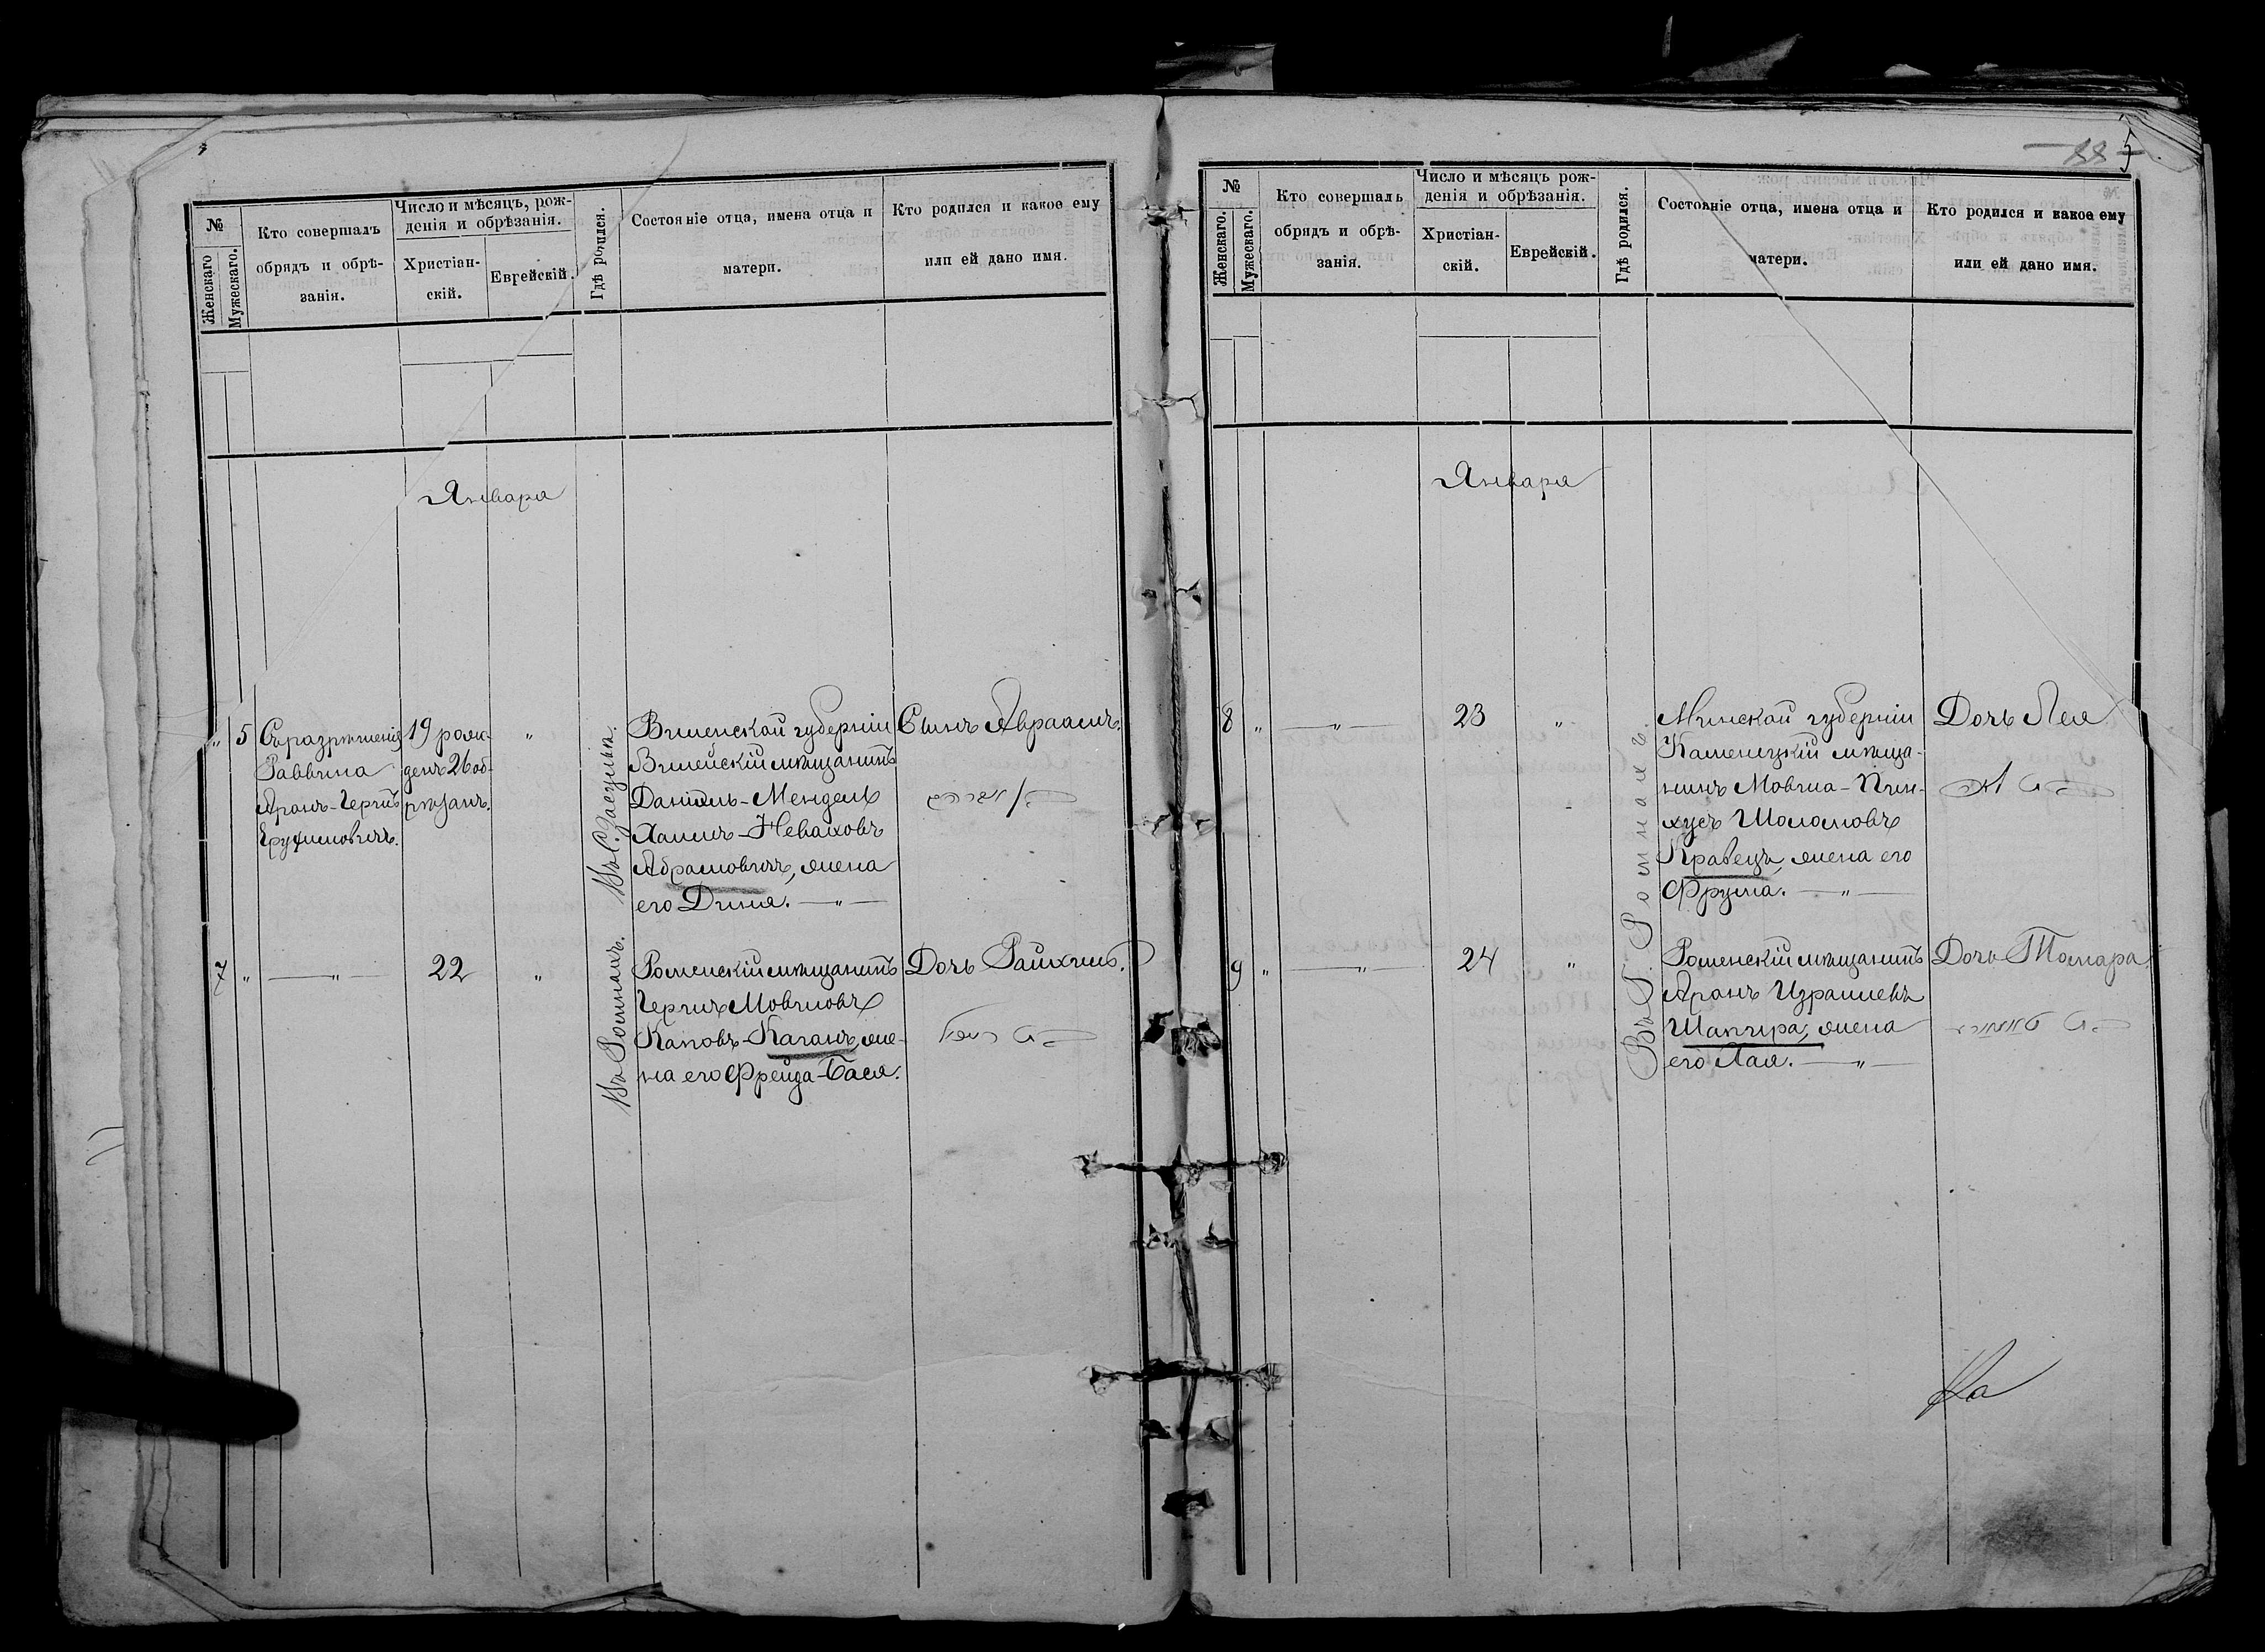 №
Женскаго
Мужескаго.
Кто совершалъ
обрядъ и обрѣ-
занія.
Число и мѣсяцъ, рож-
денія и обрѣзанія.
Христіан-
скій.
Еврейскій.
Гдѣ родился.
Состояніе отца, имена отца и
матери.
Кто родился и какое ему
или ей дано имя.
Января
" 5
Съ разрѣшенія
Раввина
Аронъ-Герцъ
19 рож-
денъ 26 об-
рѣзанъ.
"
Въ С. Засульи.
Виленской губерніи
Вилейскій мѣщанинъ
Данiилъ-Мендель
Хаимъ-Неваховъ
Абрамовичъ, жена
его Дина. — " —
Сынъ Авраамъ.
7 "
— " —
22
"
Въ Ромнахъ.
Роменскій мѣщанинъ
Герцъ Мовшовъ
Кановъ-Каганъ, же-
на его Фрейда-Бася.
Дочь Райхиль.
בת רחל
5
№
Женскаго.
Мужескаго.
Кто совершалъ
обрядъ и обрѣ-
занія.
Число и мѣсяцъ рож-
денія и обрѣзанія.
Христіан-
скій.
Еврейскій.
Гдѣ родился.
Состояніе отца, имена отца и
матери.
Кто родился и какое ему
или ей дано имя.
Января
8 "
— " —
23
"
Въ Г. Ромнахъ.
Минской губерніи
Каменецкій мѣща-
нинъ Мовша-Пин-
хусъ Шоломовъ
Кравецъ, жена его
Фрума. — " —
Дочь Лея
בת לאה
9 "
— " —
24
"
Роменскій мѣщанинъ
Аронъ Израилевъ
Шапира, жена
его Хая. — " —
Дочь Тамара
בת תמר